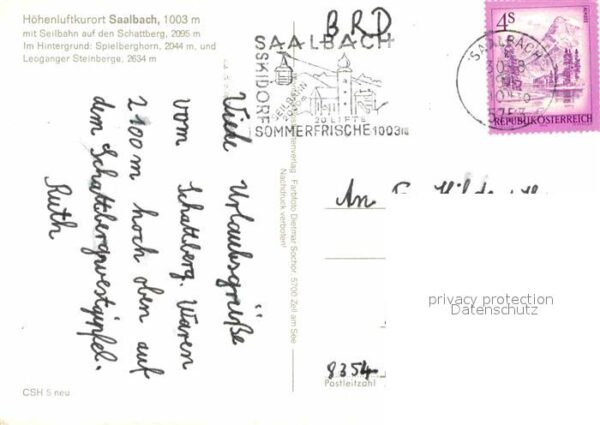 Höhenluftkurort Saalbach, 1003 m
mit Seilbahn auf den Schattberg, 2095 m
Im Hintergrund: Spielberghorn, 2044 m, und
Leoganger Steinberge, 2634 m
BRD
SAALBACH
SKIDORF
SEILBAHN
20 LIFTE
SOMMERFRISCHE 1003m
SAALBACH
4S
REPUBLIK ÖSTERREICH
Viele Urlaubsgrüße
vom Schattberg. Waren
2100m hoch oben auf
dem Schattbergwestgipfel.
Ruth
Farbfoto Dietmar Sochor, 5700 Zell am See
Nachdruck verboten!
An
privacy protection
Datenschutz
8354
Postleitzahl
CSH 5 neu